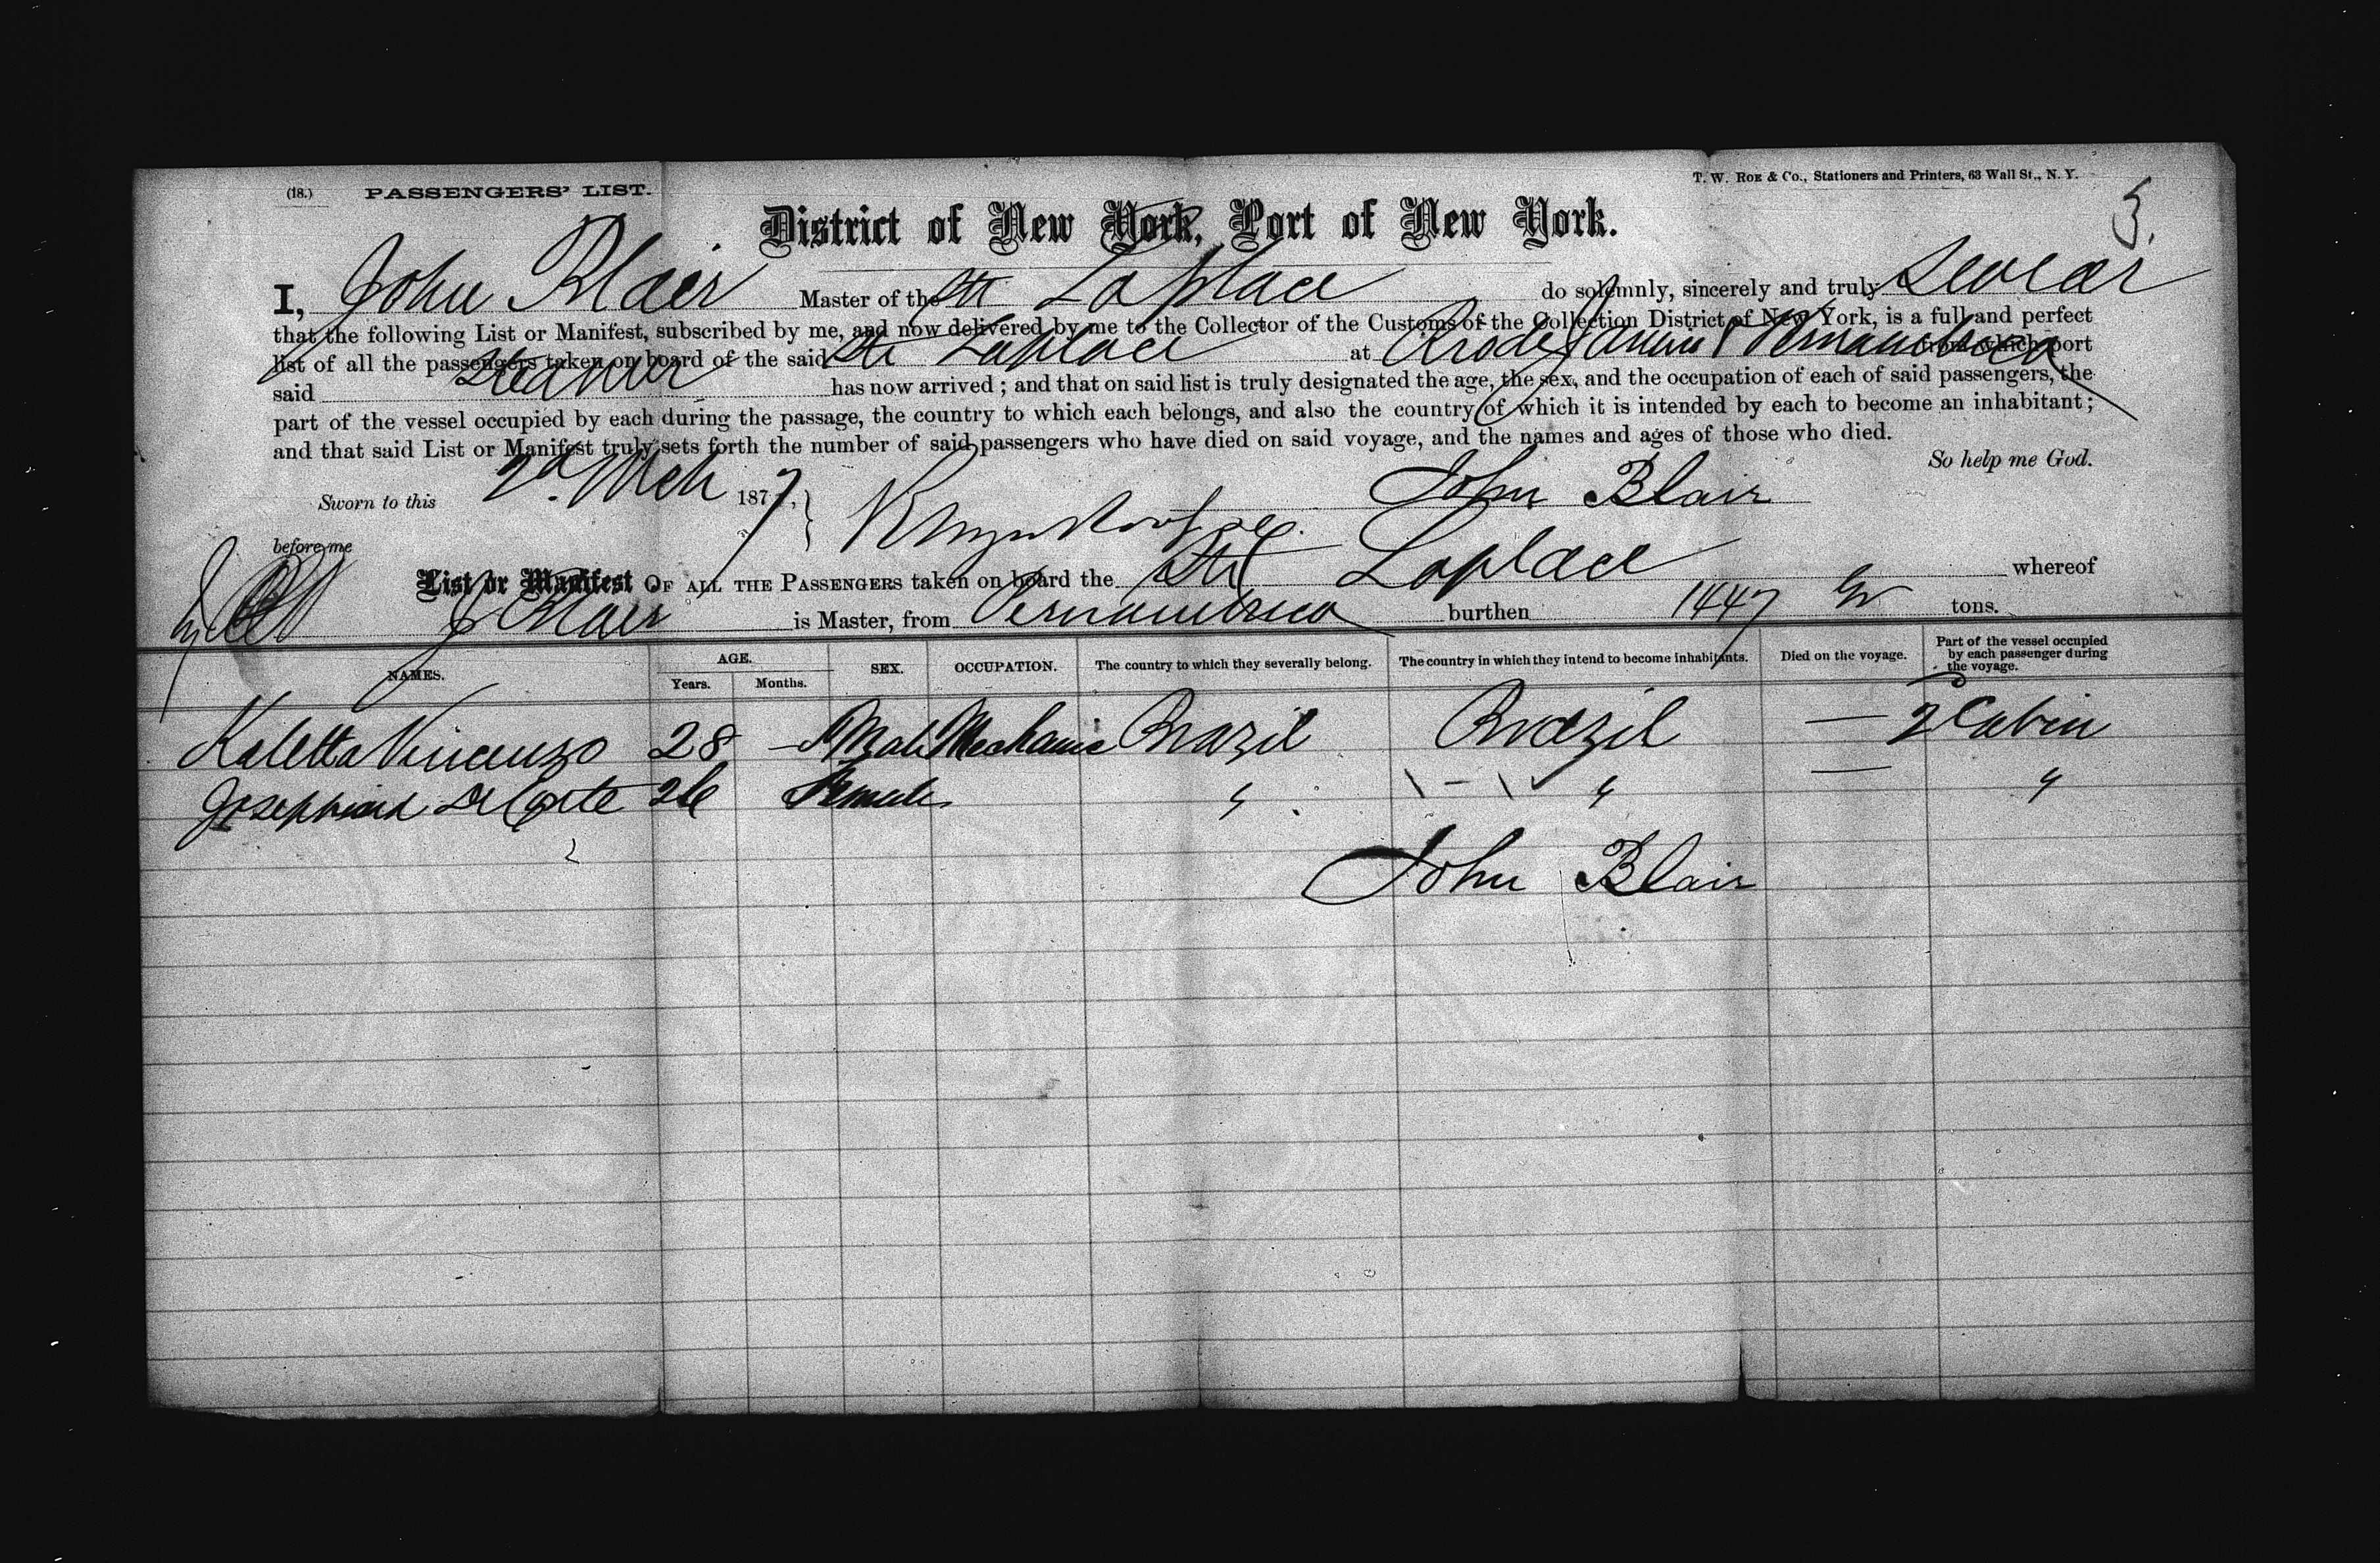 (18.) PASSENGERS' LIST.
T. W. ROE & Co., Stationers and Printers, 63 Wall St., N. Y.
5.
District of New York, Port of New York.
I, John Blair Master of the Str Laplace do solemnly, sincerely and truly Swear
that the following List or Manifest, subscribed by me, and now delivered by me to the Collector of the Customs of the Collection District of New York, is a full and perfect
list of all the passengers taken on board of the said Str Laplace at Rio de Janeiro & Pernambuco from which port
said Steamer has now arrived ; and that on said list is truly designated the age, the sex, and the occupation of each of said passengers, the
part of the vessel occupied by each during the passage, the country to which each belongs, and also the country of which it is intended by each to become an inhabitant ;
and that said List or Manifest truly sets forth the number of said passengers who have died on said voyage, and the names and ages of those who died.
So help me God.
Sworn to this 2d Mch 1877, John Blair
before me
List or Manifest OF ALL THE PASSENGERS taken on board the Str Laplace whereof
J Blair is Master, from Pernambuco burthen 1447 tons.
NAMES. AGE. Years. Months. SEX. OCCUPATION. The country to which they severally belong. The country in which they intend to become inhabitants. Died on the voyage. Part of the vessel occupied by each passenger during the voyage.
Kaletta Vincenzo 28 — Male Mechanic Brazil Brazil — 2 Cabin
26 Female " " — "
John Blair